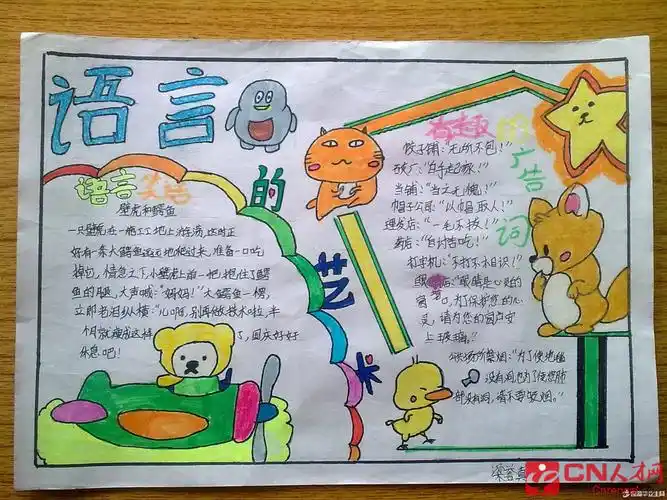 语言的艺术
语言笑话
壁虎和鳄鱼
一只壁虎在一施工工地上游荡,这时正
好有一条大鳄鱼远远地爬过来,准备一口吃
掉它,情急之下,小壁虎上前一把抱住了鳄
鱼的腿,大声喊:“妈妈!”大鳄鱼一愣,
立即老泪纵横:“儿啊,别再做技术啦,半
个月就瘦成这样了,国庆好好
休息吧!
有趣的广告词
饺子铺:“无所不包!”
砖厂:“白手起家!”
当铺:“当之无愧!”
帽子公司:“以帽取人!”
理发店:“一毛不拔!”
药店:“自讨苦吃!”
打字机:“不打不相识!”
眼镜店:“眼睛是心灵的
窗口,为了保护您的心
灵,请为您的窗户安
上玻璃。”
公共场所禁烟:“为了使地毯
没有洞,也为了使您肺
部没有洞,请不要吸烟。”
CN人才网